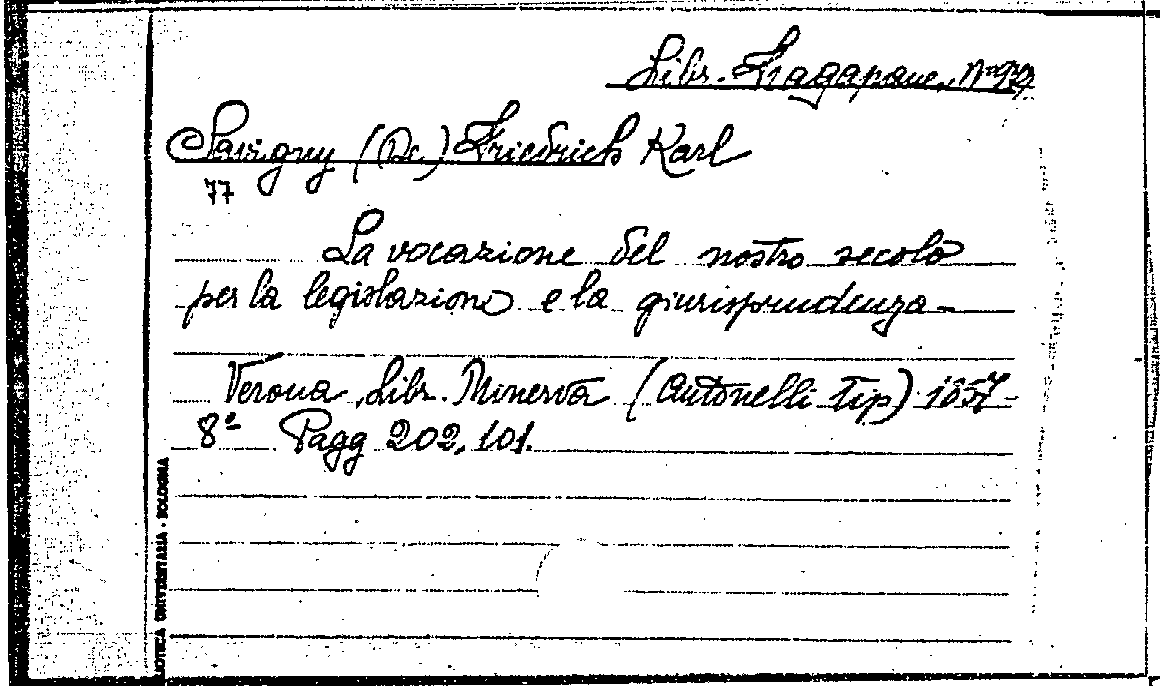 Libr. Fragapane, Nº 92
Savigny (De) Friedrich Karl
77
La vocazione del nostro secolo
per la legislazione e la giurisprudenza -
Verona, Libr. Minerva (Antonelli tip) 1857 -
8º Pagg 202, 101.
LIOTECA UNIVERSITARIA - BOLOGNA